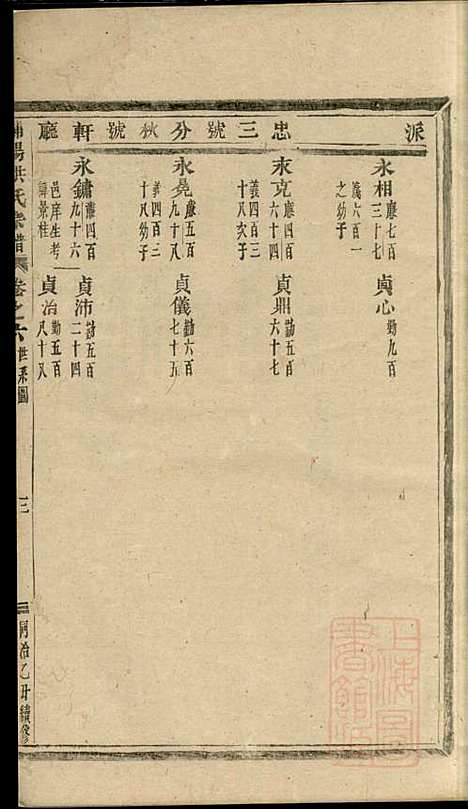 派　忠三號分秋號軒廳
永相 廉七百三十七 義六百一之幼子
貞心 勤九百
永克 廉四百六十四 義四百三十八次子
貞鼎 勤五百六十七
永堯 廉五百九十八 義四百三十八幼子
貞儀 勤六百七十五
永鏞 廉四百九十六 邑庠生考諱景桂
貞沛 勤五百二十四
貞治 勤五百八十八
陽洪氏宗譜 卷之六 世系圖 三 同治乙丑續修
上海圖書館